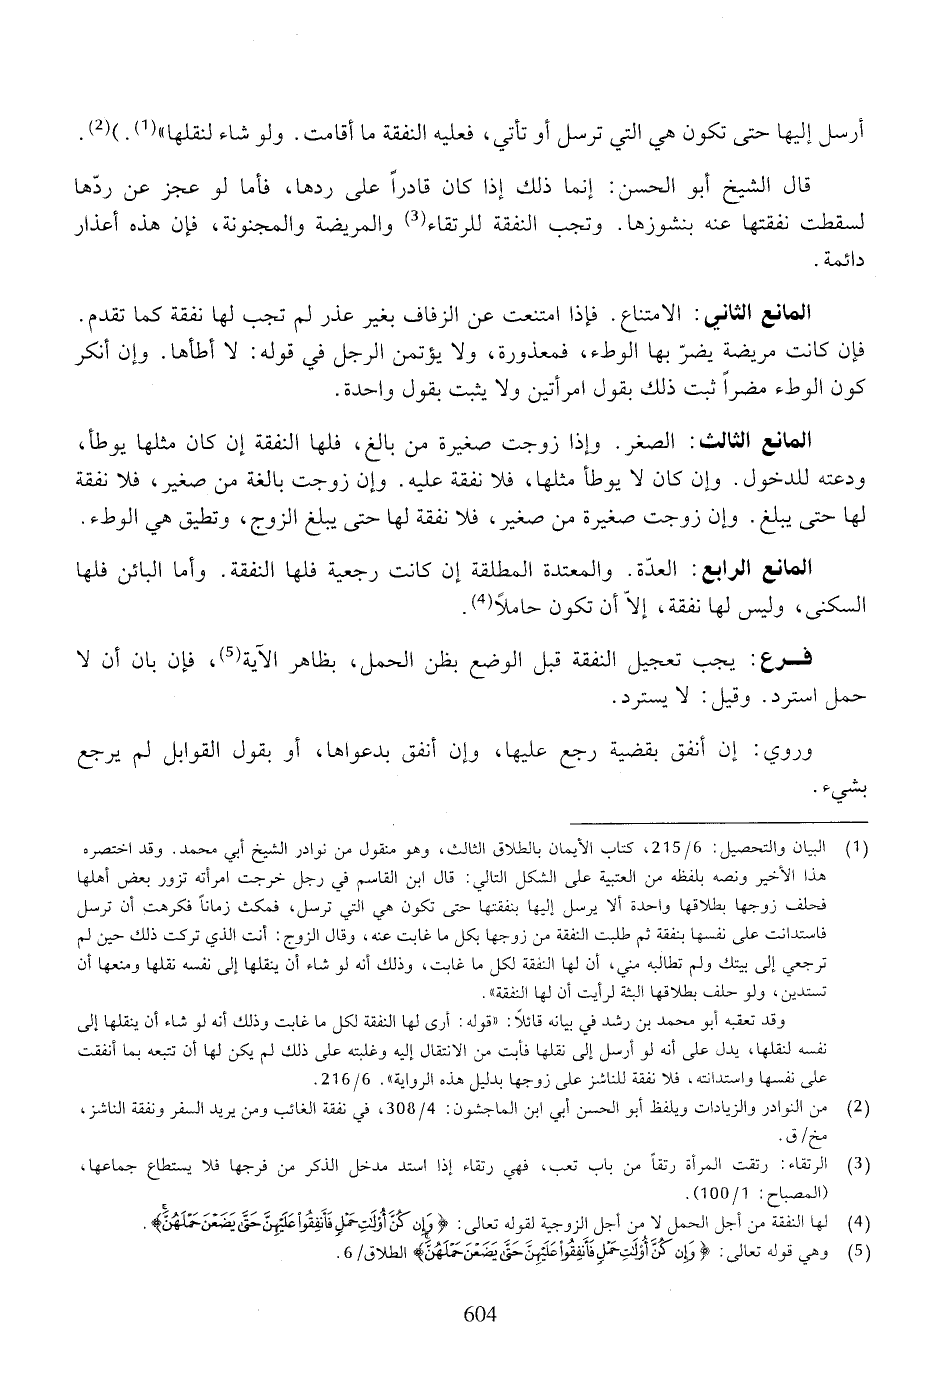 أرسل إليها حتى تكون هي التي ترسل أو تأتي، فعليه النفقة ما أقامت. ولو شاء لنقلها»(1).)(2).
قال الشيخ أبو الحسن: إنما ذلك إذا كان قادراً على ردها، فأما لو عجز عن ردّها
لسقطت نفقتها عنه بنشوزها. وتجب النفقة للرتقاء(3) والمريضة والمجنونة، فإن هذه أعذار
دائمة.
المانع الثاني: الامتناع. فإذا امتنعت عن الزفاف بغير عذر لم تجب لها نفقة كما تقدم.
فإن كانت مريضة يضرّ بها الوطء، فمعذورة، ولا يؤتمن الرجل في قوله: لا أطأها. وإن أنكر
كون الوطء مضراً ثبت ذلك بقول امرأتين ولا يثبت بقول واحدة.
المانع الثالث: الصغر. وإذا زوجت صغيرة من بالغ، فلها النفقة إن كان مثلها يوطأ،
ودعته للدخول. وإن كان لا يوطأ مثلها، فلا نفقة عليه. وإن زوجت بالغة من صغير، فلا نفقة
لها حتى يبلغ. وإن زوجت صغيرة من صغير، فلا نفقة لها حتى يبلغ الزوج، وتطيق هي الوطء.
المانع الرابع: العدّة. والمعتدة المطلقة إن كانت رجعية فلها النفقة. وأما البائن فلها
السكنى، وليس لها نفقة، إلاّ أن تكون حاملاً(4).
فــرع: يجب تعجيل النفقة قبل الوضع بظن الحمل، بظاهر الآية(5)، فإن بان أن لا
حمل استرد. وقيل: لا يسترد.
وروي: إن أنفق بقضية رجع عليها، وإن أنفق بدعواها، أو بقول القوابل لم يرجع
بشيء.
(1) البيان والتحصيل: 215/6، كتاب الأيمان بالطلاق الثالث، وهو منقول من نوادر الشيخ أبي محمد. وقد اختصره
هذا الأخير ونصه بلفظه من العتبية على الشكل التالي: قال ابن القاسم في رجل خرجت امرأته تزور بعض أهلها
فحلف زوجها بطلاقها واحدة ألا يرسل إليها بنفقتها حتى تكون هي التي ترسل، فمكث زماناً فكرهت أن ترسل
فاستدانت على نفسها بنفقة ثم طلبت النفقة من زوجها بكل ما غابت عنه، وقال الزوج: أنت الذي تركت ذلك حين لم
ترجعي إلى بيتك ولم تطالبه مني، أن لها النفقة لكل ما غابت، وذلك أنه لو شاء أن ينقلها إلى نفسه نقلها ومنعها أن
تستدين، ولو حلف بطلاقها البثة لرأيت أن لها النفقة».
وقد تعقبه أبو محمد بن رشد في بيانه قائلاً: «قوله: أرى لها النفقة لكل ما غابت وذلك أنه لو شاء أن ينقلها إلى
نفسه لنقلها، يدل على أنه لو أرسل إلى نقلها فأبت من الانتقال إليه وغلبته على ذلك لم يكن لها أن تتبعه بما أنفقت
على نفسها واستدانته، فلا نفقة للناشز على زوجها بدليل هذه الرواية». 216/6.
(2) من النوادر والزيادات وبلفظ أبو الحسن أبي ابن الماجشون: 308/4، في نفقة الغائب ومن يريد السفر ونفقة الناشز،
مخ/ق.
(3) الرتقاء: رتقت المرأة رتقاً من باب تعب، فهي رتقاء إذا استد مدخل الذكر من فرجها فلا يستطاع جماعها،
(المصباح: 100/1).
(4) لها النفقة من أجل الحمل لا من أجل الزوجية لقوله تعالى: ﴿وَإِن كُنَّ أُوْلَٰتِ حَمْلٍ فَأَنفِقُواْ عَلَيْهِنَّ حَتَّىٰ يَضَعْنَ حَمْلَهُنَّ﴾.
(5) وهي قوله تعالى: ﴿وَإِن كُنَّ أُوْلَٰتِ حَمْلٍ فَأَنفِقُواْ عَلَيْهِنَّ حَتَّىٰ يَضَعْنَ حَمْلَهُنَّ﴾ الطلاق/6.
604